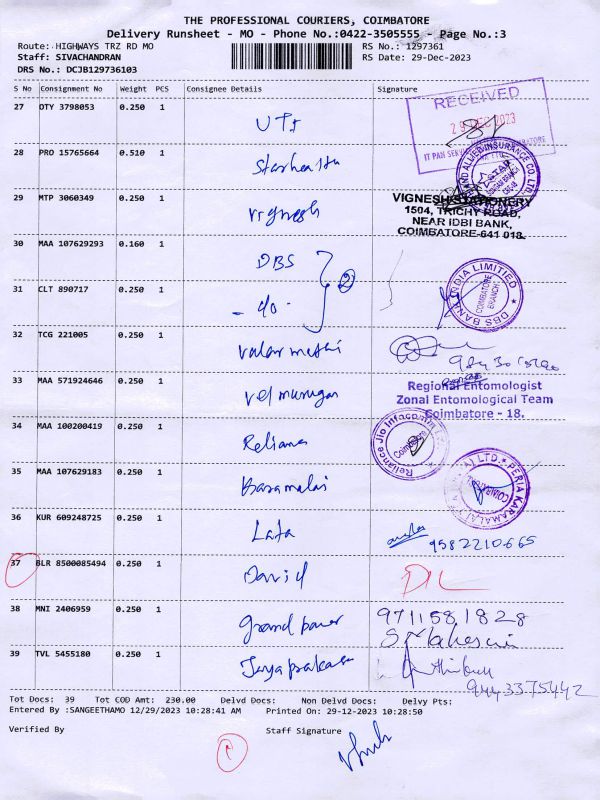 THE PROFESSIONAL COURIERS, COIMBATORE
Delivery Runsheet - MO - Phone No.:0422-3505555 - Page No.:3
Route: HIGHWAYS TRZ RD MO RS No.: 1297361
Staff: SIVACHANDRAN RS Date: 29-Dec-2023
DRS No.: DCJB129736103
S No Consignment No Weight PCS Consignee Details Signature
27 DTY 3798053 0.250 1 UTI
RECEIVED
29 DEC 2023
28 PRO 15765664 0.510 1
STAR
29 MTP 3060349 0.250 1 Vignesh
VIGNESH STATIONERY
1504, TRICHY ROAD,
NEAR IDBI BANK,
COIMBATORE-641 018.
30 MAA 107629293 0.160 1 DBS
31 CLT 890717 0.250 1 - do - 2
DBS BANK INDIA LIMITED
COIMBATORE BRANCH
32 TCG 221005 0.250 1 Valarmathi
33 MAA 571924646 0.250 1 Velmurugan
Regional Entomologist
Zonal Entomological Team
Coimbatore - 18.
34 MAA 100200419 0.250 1 Reliance
Reliance Jio Infocomm
Coimbatore
35 MAA 107629183 0.250 1
PERIA KARAMALAI
36 KUR 609248725 0.250 1 Lata 9582210665
37 BLR 8500085494 0.250 1 David DL
38 MNI 2406959 0.250 1 9711581828
39 TVL 5455180 0.250 1 Jeyaprakash
9443375442
Tot Docs: 39 Tot COD Amt: 230.00 Delvd Docs: Non Delvd Docs: Delvy Pts:
Entered By :SANGEETHAMO 12/29/2023 10:28:41 AM Printed On: 29-12-2023 10:28:50
Verified By Staff Signature
1